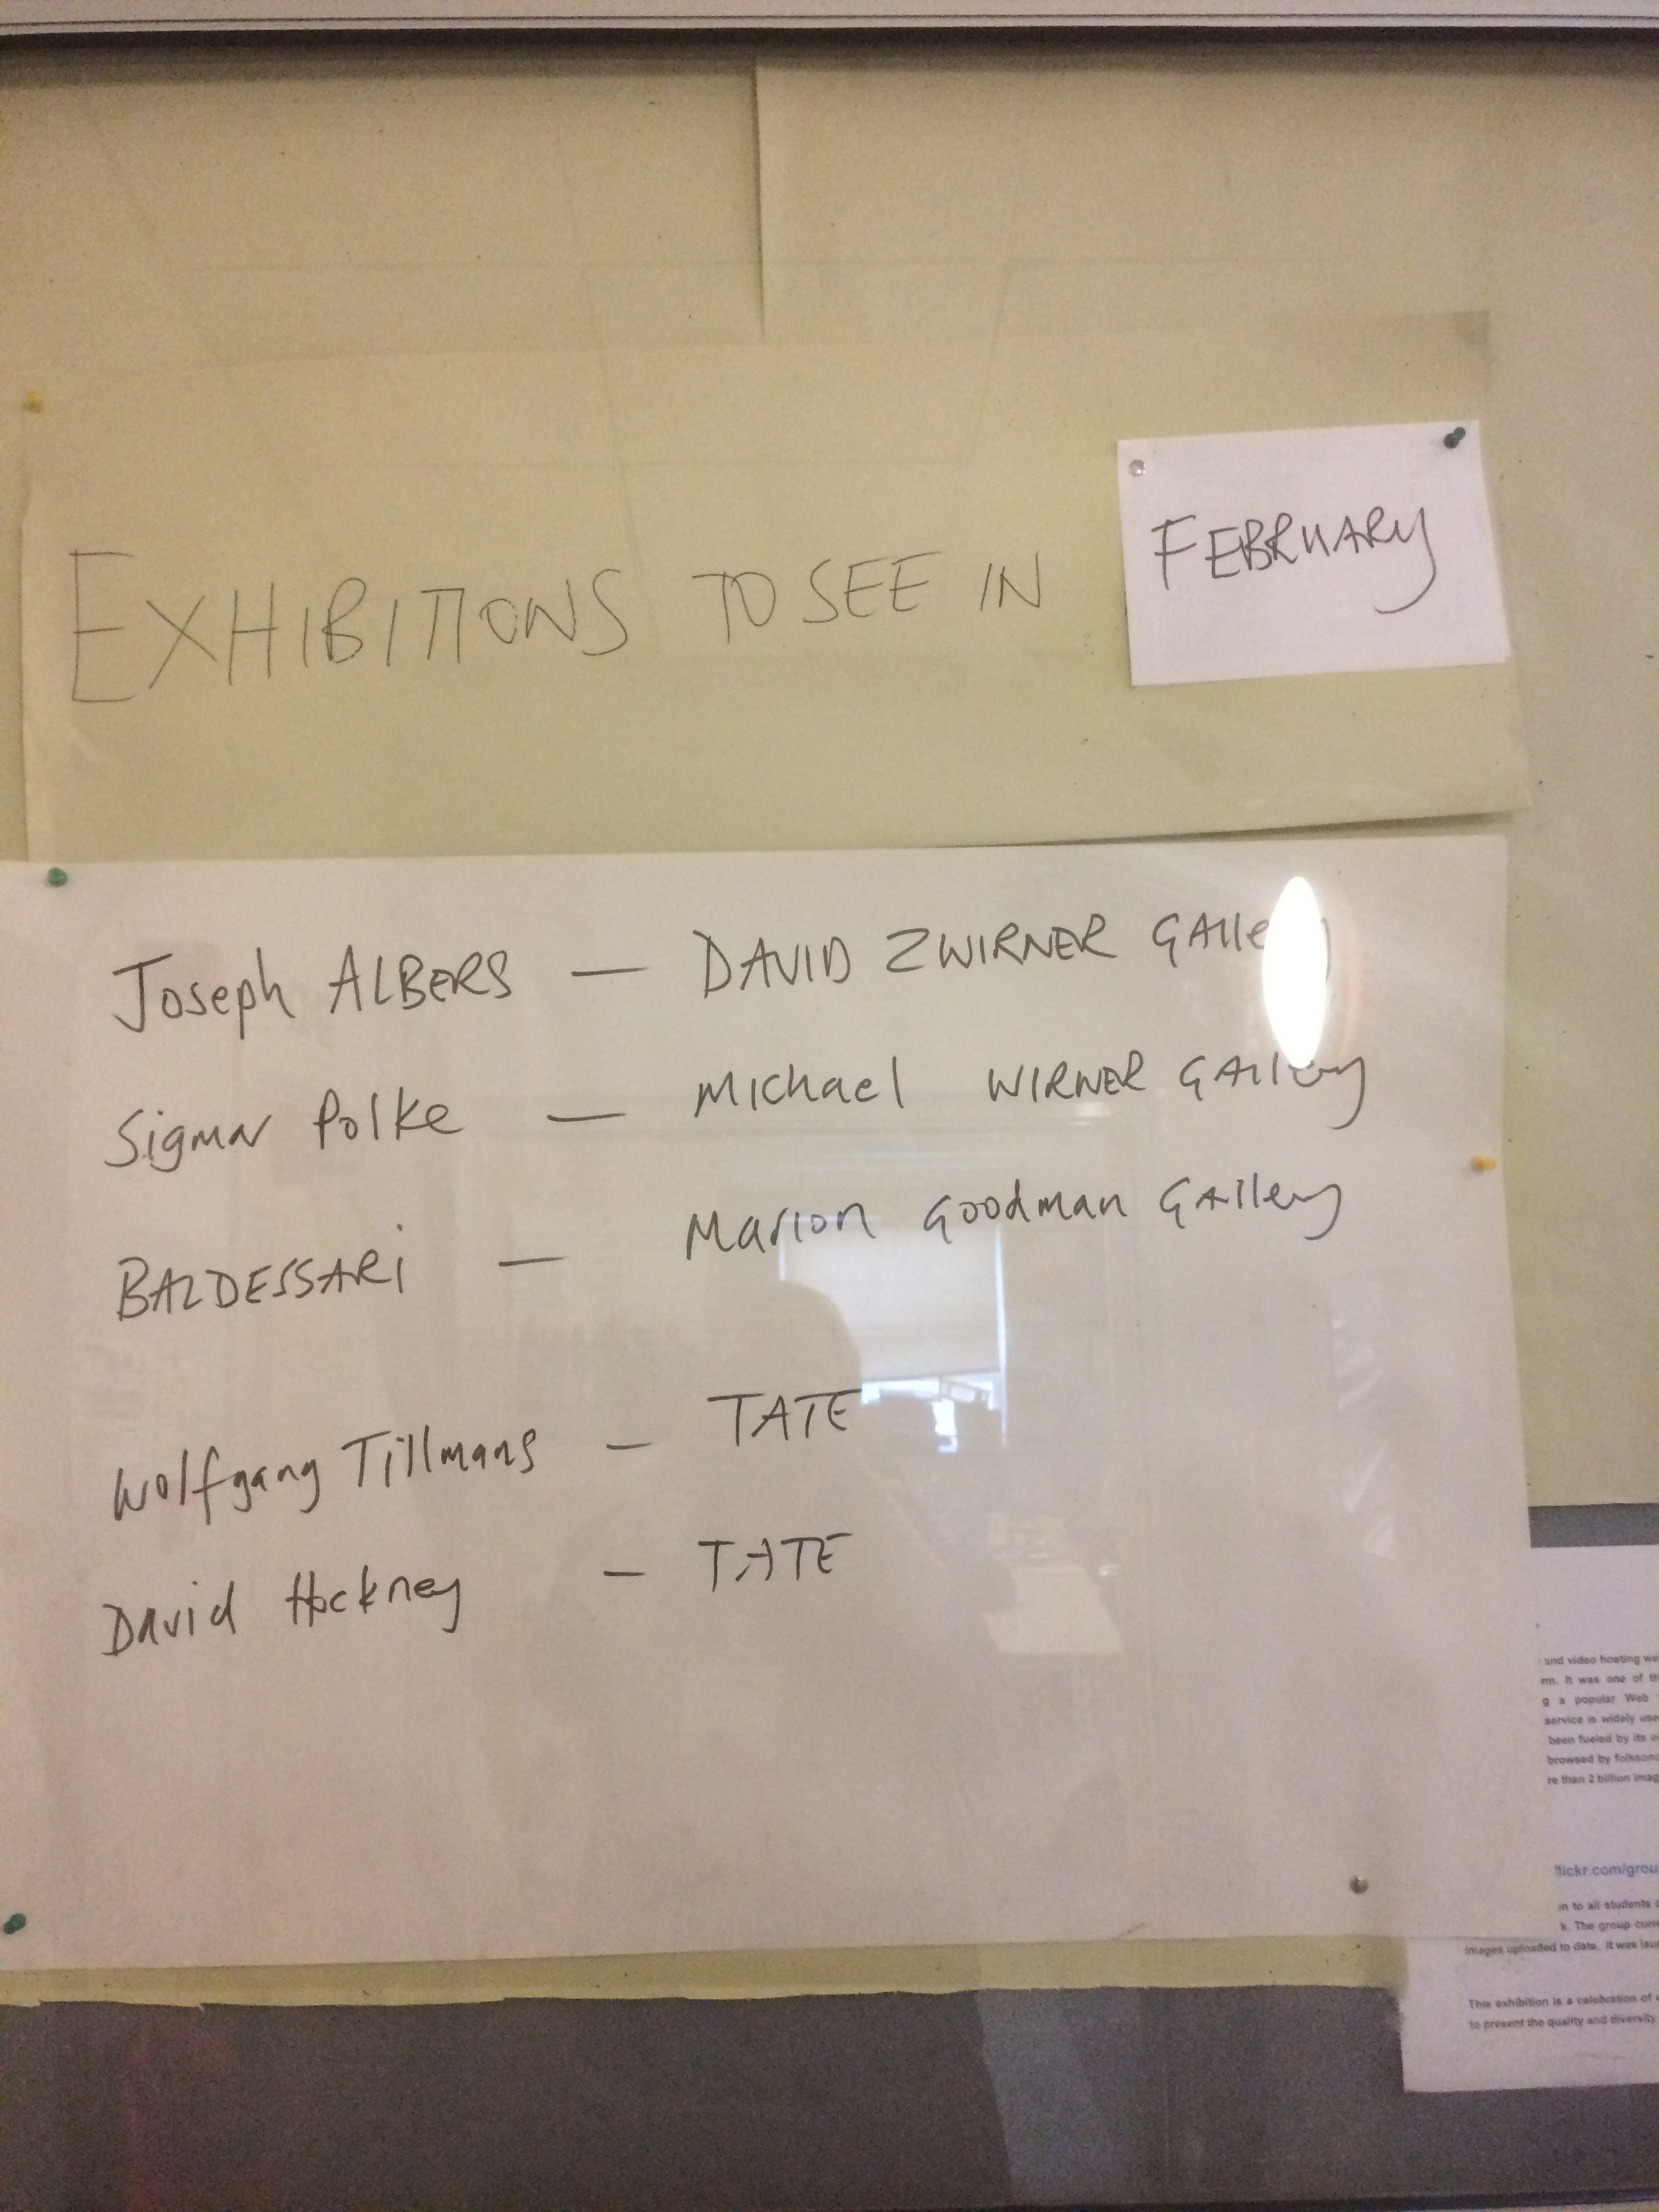 EXHIBITIONS TO SEE IN FEBRUARY
Joseph ALBERS — DAVID ZWIRNER GALLERY
Sigmar Polke — Michael WIRNER GALLERY
BALDESSARI — Marion Goodman Gallery
Wolfgang Tillmans — TATE
David Hockney — TATE
and video hosting
It was one of
g a popular Web
service is widely
been fueled by its
browsed by
re than 2 billion
flickr.com/grou
in to all students
The group
images uploaded to date. It was
This exhibition is a celebration of
to present the quality and diversity